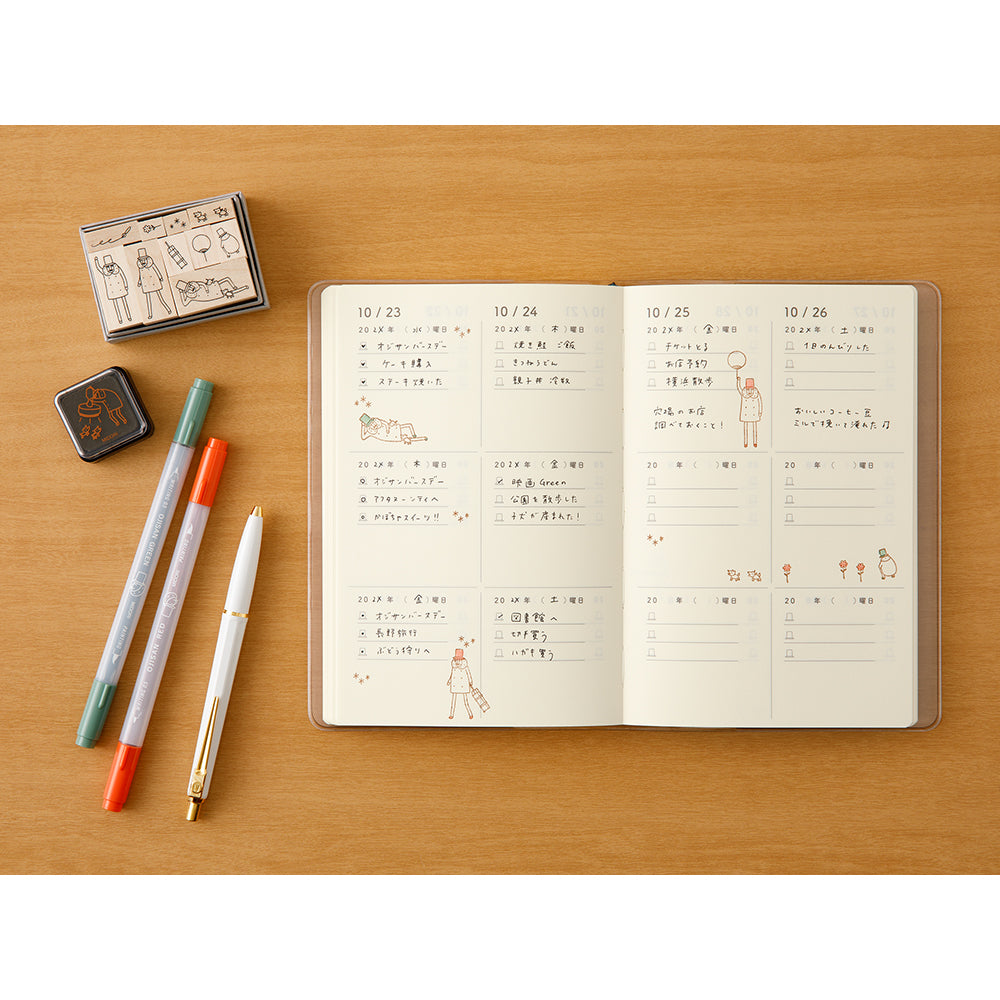 10 / 23
202X 年 (水) 曜日
オジサンバースデー
ケーキ購入
ステーキ焼いた
202X 年 (木) 曜日
オジサンバースデー
アフタヌーンティへ
かぼちゃスイーツ!!
202X 年 (金) 曜日
オジサンバースデー
長野旅行
ぶどう狩りへ
10 / 24
202X 年 (木) 曜日
焼き鮭 ご飯
きつねうどん
親子丼 冷奴
202X 年 (金) 曜日
映画 Green
公園を散歩した
子犬が産まれた!
202X 年 (土) 曜日
図書館へ
切手買う
ハガキ買う
10 / 25
202X 年 (金) 曜日
チケットとる
お店予約
横浜散歩
穴場のお店
調べておくこと!
20 年 ( ) 曜日
20 年 ( ) 曜日
10 / 26
202X 年 (土) 曜日
1日のんびりした
おいしいコーヒー豆
ミルで挽いて淹れた
20 年 ( ) 曜日
20 年 ( ) 曜日
MIDORI
OJISAN GREEN
OJISAN RED